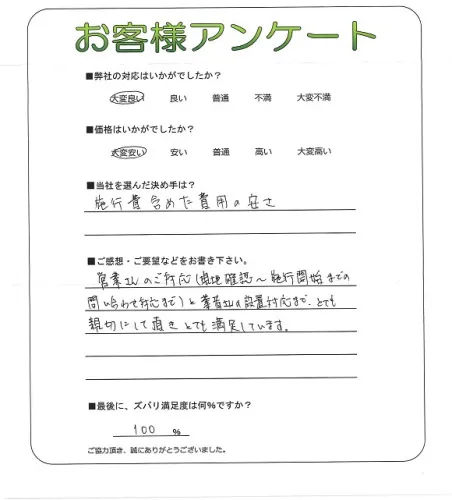 お客様アンケート
■弊社の対応はいかがでしたか？
大変良い 良い 普通 不満 大変不満
■価格はいかがでしたか？
大変安い 安い 普通 高い 大変高い
■当社を選んだ決め手は？
施行費含めた費用の安さ
■ご感想・ご要望などをお書き下さい。
営業さんのご対応（現地確認〜施行開始までの
問い合わせ対応まで）と業者さんの設置対応まで、とても
親切にして頂きとても満足しています。
■最後に、ズバリ満足度は何％ですか？
100 %
ご協力頂き、誠にありがとうございました。